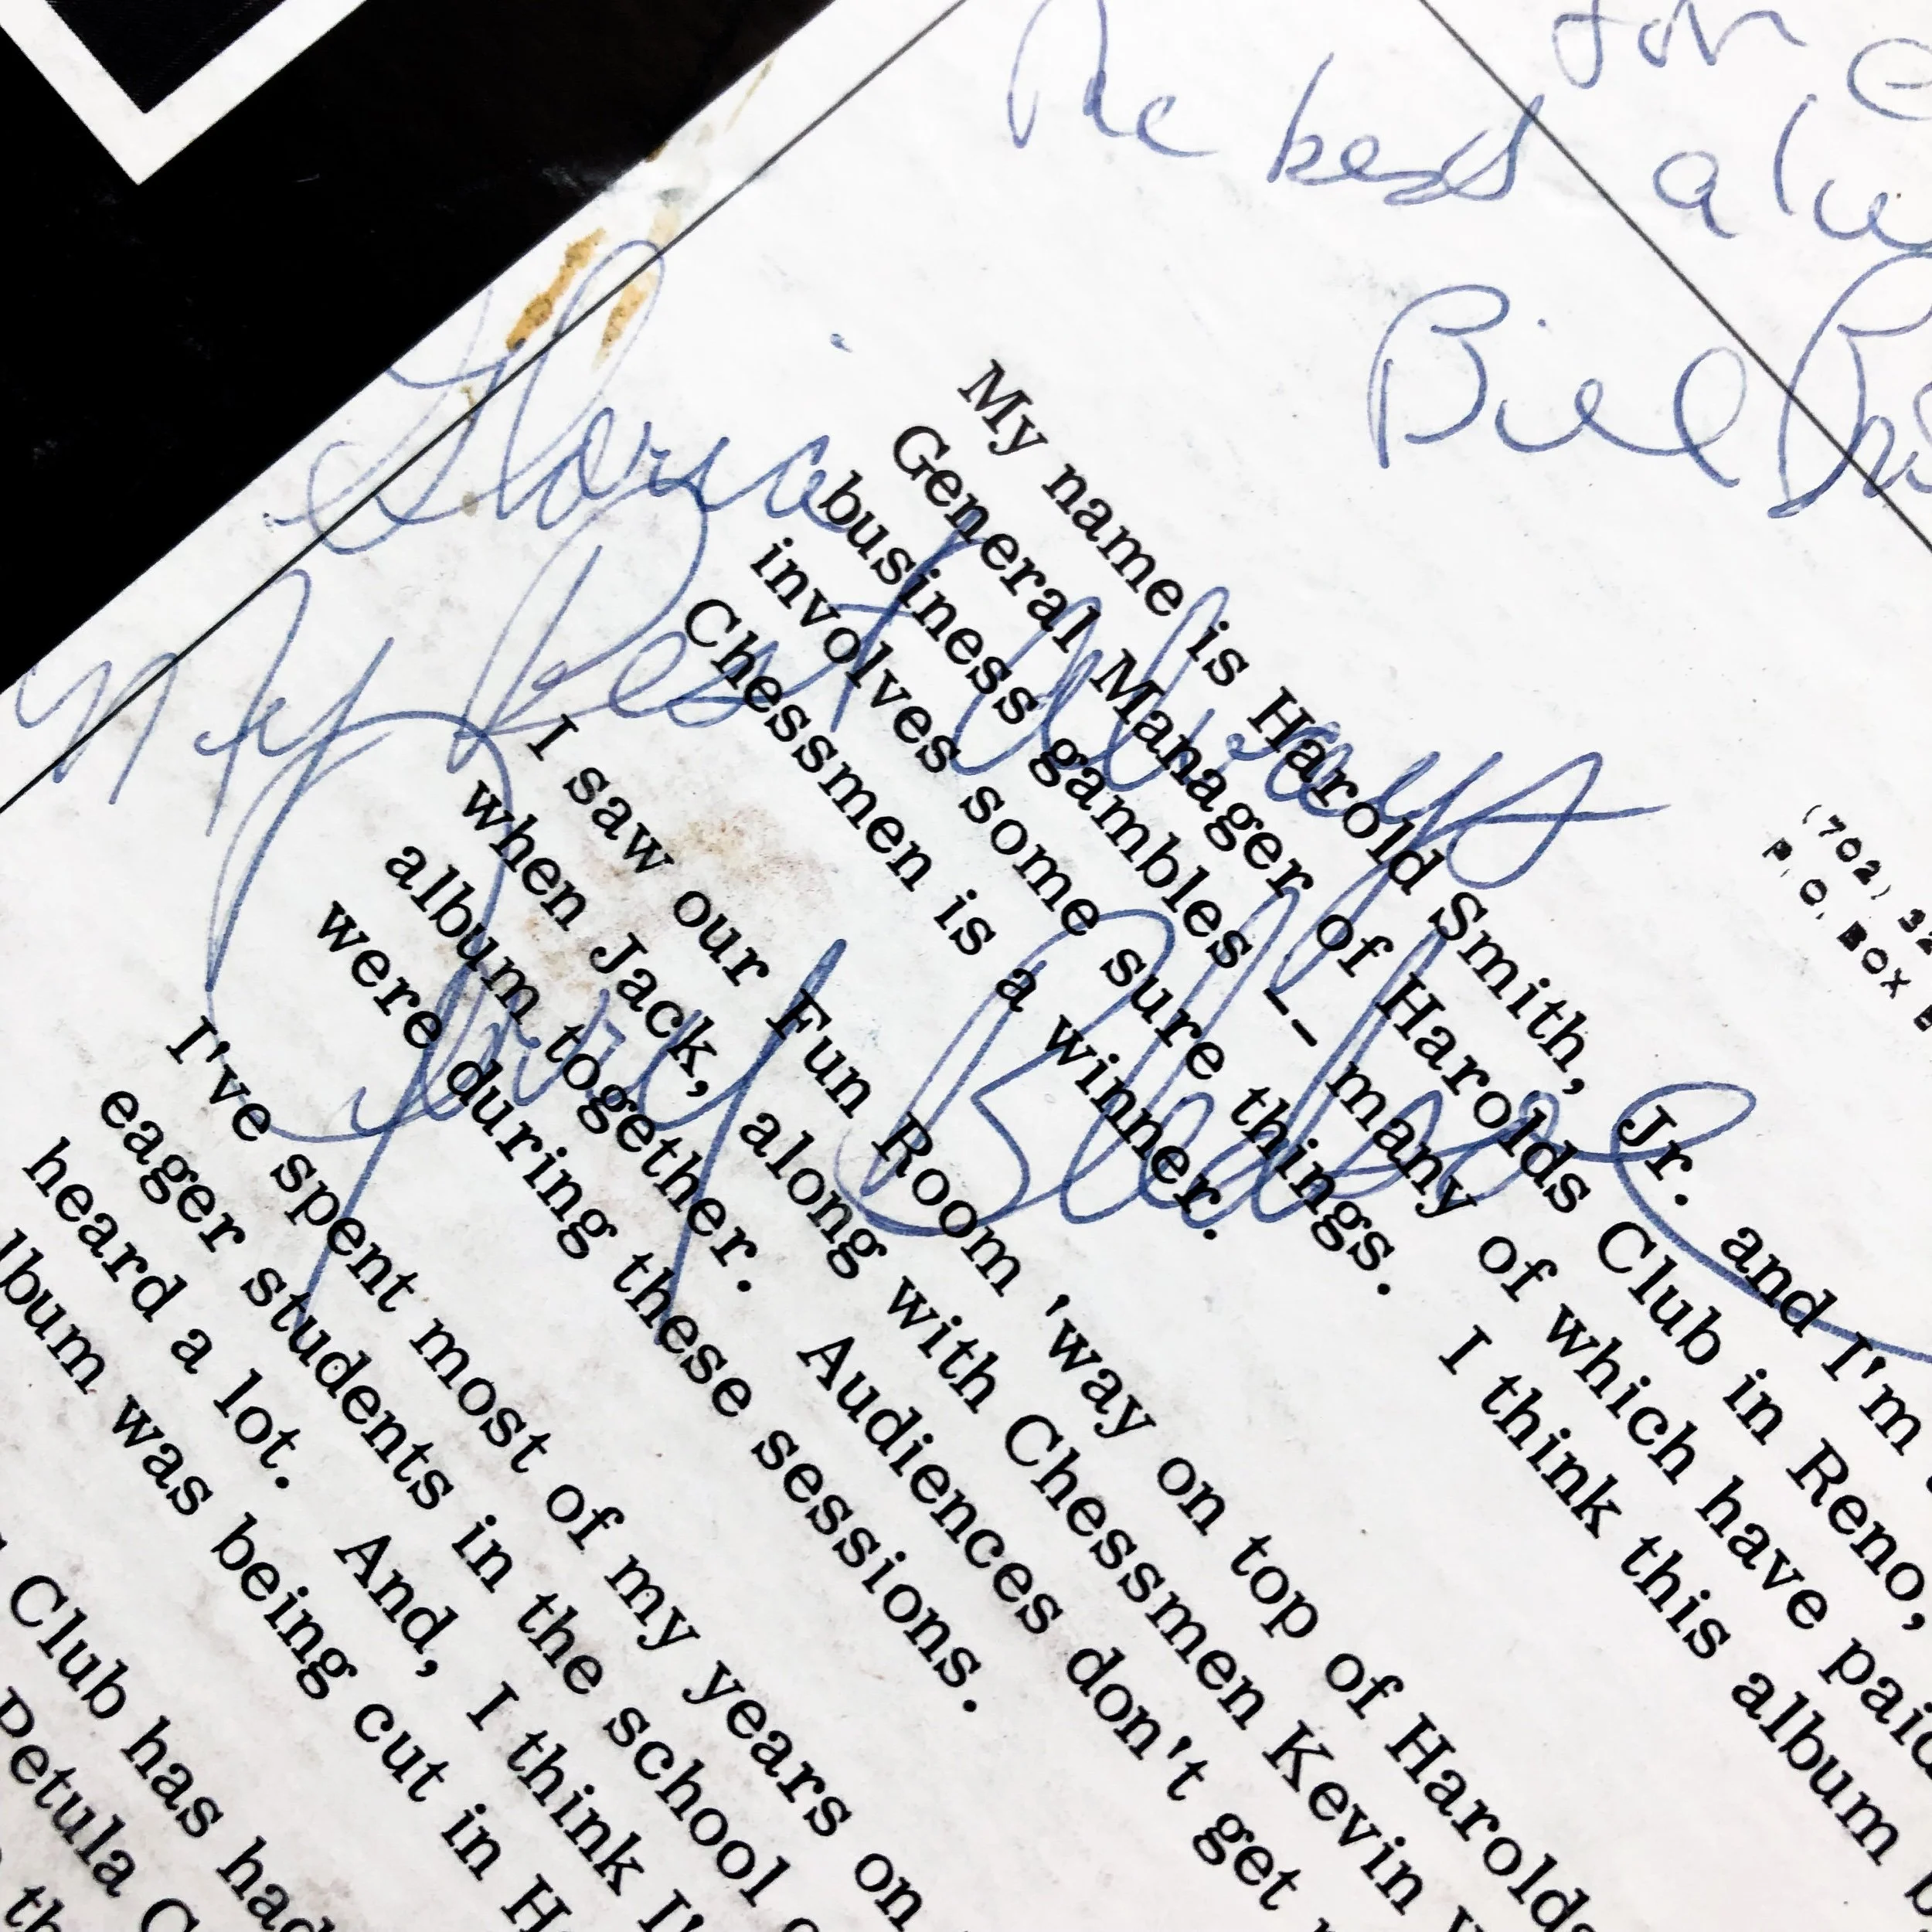 The best
Bill
Gloria
My Best Always
(702)
P.O. BOX
My name is Harold Smith, Jr. and I'm
General Manager of Harolds Club in Reno,
business gambles -- many of which have paid
involves some sure things. I think this album
Chessmen is a winner.
I saw our Fun Room 'way on top of Harolds
when Jack, along with Chessmen Kevin
album together. Audiences don't get
were during these sessions.
I've spent most of my years on
eager students in the school
heard a lot. And, I think I'
lbum was being cut in H
Club has had
Petula C